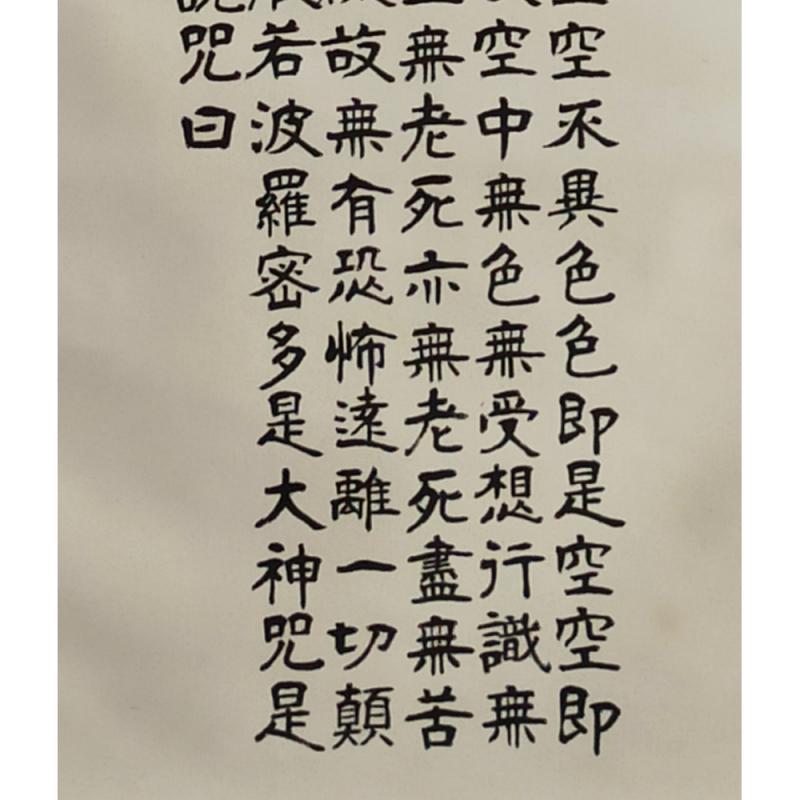 空不異色色即是空空即
空中無色無受想行識無
無老死亦無老死盡無苦
故無有恐怖遠離一切顛
若波羅密多是大神咒是
咒曰